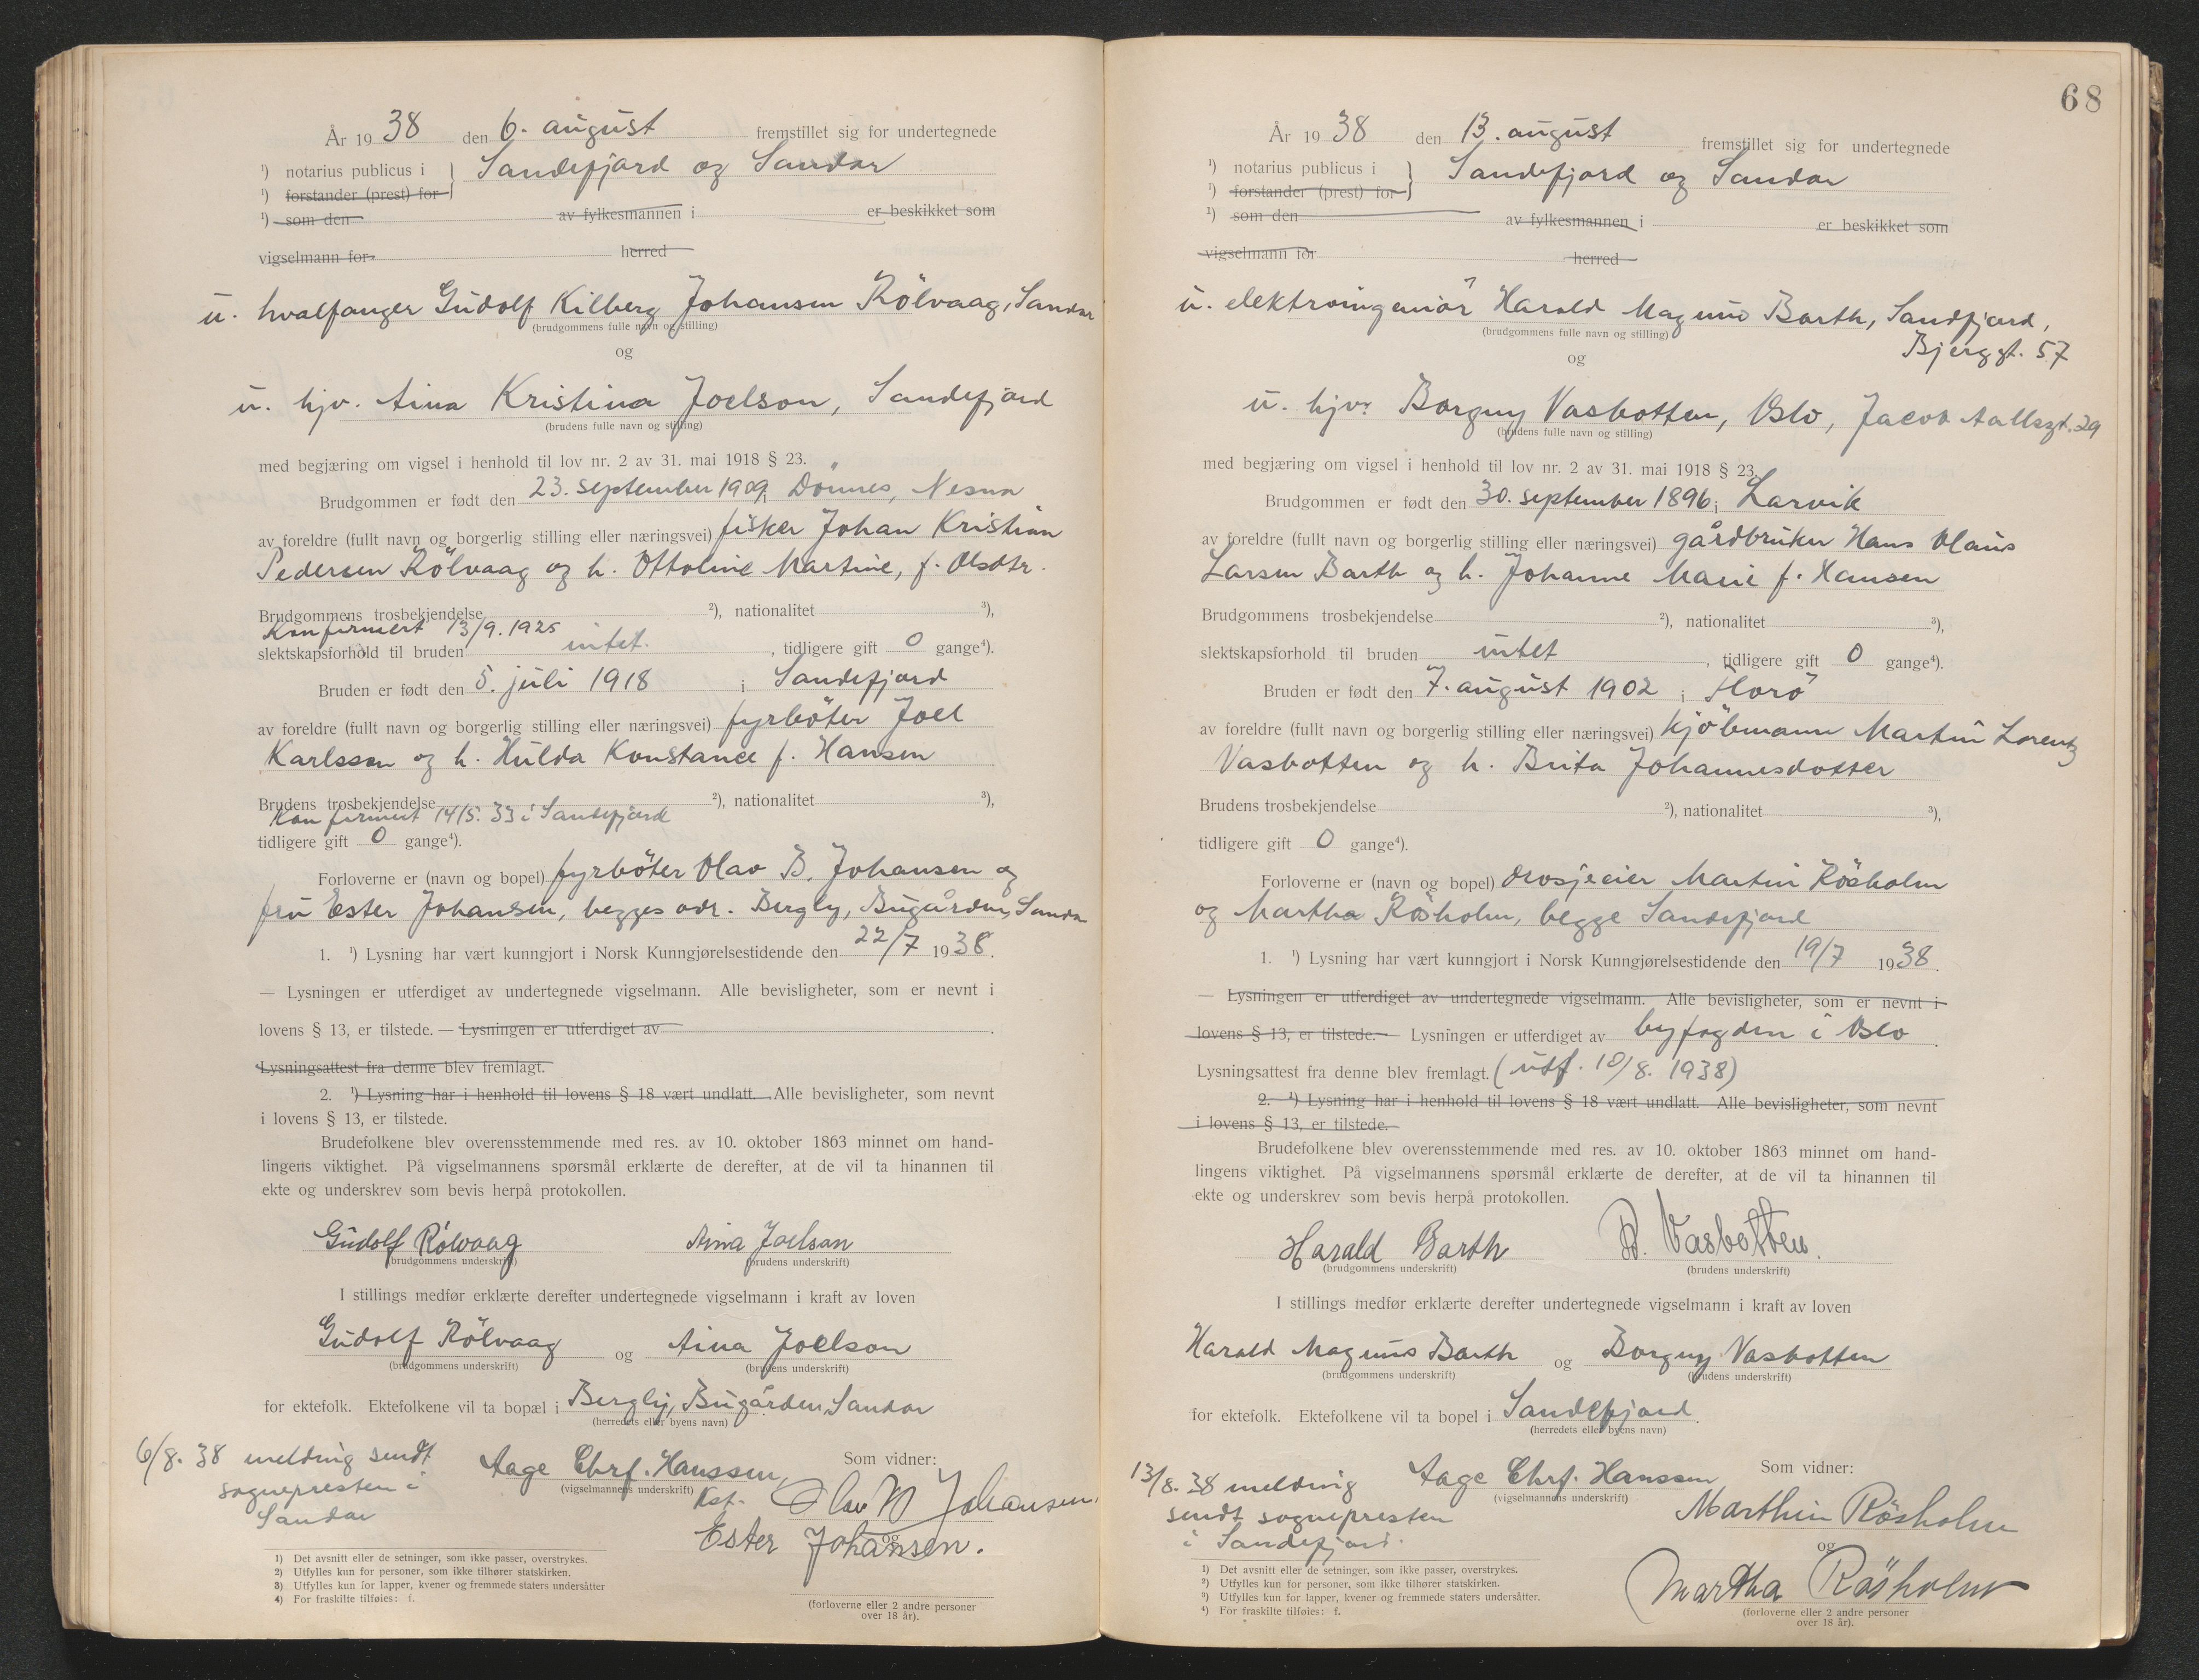 År 1938 den 6. august fremstillet sig for undertegnede
¹) notarius publicus i } Sandefjord og Sandar
¹) forstander (prest) for
¹) som den av fylkesmannen i er beskikket som
vigselmann for herred
u. hvalfanger Gudolf Kilberg Johansen Rölvaag, Sandar
(brudgommens fulle navn og stilling)
og
u. hjv. Aina Kristina Joelson, Sandefjord
(brudens fulle navn og stilling)
med begjæring om vigsel i henhold til lov nr. 2 av 31. mai 1918 § 23.
Brudgommen er født den 23. september 1909 i Dönnes, Nesna
av foreldre (fullt navn og borgerlig stilling eller næringsvei) fisker Johan Kristian
Pedersen Rölvaag og h. Ottoline Martine, f. Olsdtr.
Brudgommens trosbekjendelse ²), nationalitet ³),
Konfirmert 13/9. 1925
slektskapsforhold til bruden intet. , tidligere gift 0 gange⁴).
Bruden er født den 5. juli 1918 i Sandefjord
av foreldre (fullt navn og borgerlig stilling eller næringsvei) fyrböter Joel
Karlsson og h. Hulda Konstance f. Hansen
Brudens trosbekjendelse ²), nationalitet ³),
Konfirmert 14/5. 33 i Sandefjord
tidligere gift 0 gange⁴).
Forloverne er (navn og bopel) fyrböter Olav B. Johansen og
fru Ester Johansen, begges adr. Bergly, Bugården, Sandar
1. ¹) Lysning har vært kunngjort i Norsk Kunngjørelsestidende den 22/7 1938.
— Lysningen er utferdiget av undertegnede vigselmann. Alle bevisligheter, som er nevnt i
lovens § 13, er tilstede. — Lysningen er utferdiget av .
Lysningsattest fra denne blev fremlagt.
2. ¹) Lysning har i henhold til lovens § 18 vært undlatt. Alle bevisligheter, som nevnt
i lovens § 13, er tilstede.
Brudefolkene blev overensstemmende med res. av 10. oktober 1863 minnet om hand-
lingens viktighet. På vigselmannens spørsmål erklærte de derefter, at de vil ta hinannen til
ekte og underskrev som bevis herpå protokollen.
Gudolf Rölvaag Aina Joelson
(brudgommens underskrift) (brudens underskrift)
I stillings medfør erklærte derefter undertegnede vigselmann i kraft av loven
Gudolf Rölvaag og Aina Joelson
(brudgommens underskrift) (brudens underskrift)
for ektefolk. Ektefolkene vil ta bopæl i Bergly, Bugården, Sandar
(herredets eller byens navn)
6/8. 38 melding sendt
sognepresten i
Sandar
Aage Chrf. Hanssen,
(vigselmannens underskrift) Kst.
Som vidner:
Olav B Johansen.
og
Ester Johansen.
(forloverne eller 2 andre personer
over 18 år).
1) Det avsnitt eller de setninger, som ikke passer, overstrykes.
2) Utfylles kun for personer, som ikke tilhører statskirken.
3) Utfylles kun for lapper, kvener og fremmede staters undersåtter
4) For fraskilte tilføies: f.
68
År 1938 den 13. august fremstillet sig for undertegnede
¹) notarius publicus i } Sandefjord og Sandar
¹) forstander (prest) for
¹) som den av fylkesmannen i er beskikket som
vigselmann for herred
u. elektroingeniör Harald Magnus Barth, Sandefjord,
Bjerggt. 57
(brudgommens fulle navn og stilling)
og
u. hjv. Borgny Vasbotten, Oslo, Jacob Aallsgt. 29
(brudens fulle navn og stilling)
med begjæring om vigsel i henhold til lov nr. 2 av 31. mai 1918 § 23.
Brudgommen er født den 30. september 1896 i Larvik
av foreldre (fullt navn og borgerlig stilling eller næringsvei) gårdbruker Hans Olaus
Larsen Barth og h. Johanne Marie f. Hansen
Brudgommens trosbekjendelse ²), nationalitet ³),
slektskapsforhold til bruden intet , tidligere gift 0 gange⁴).
Bruden er født den 7. august 1902 i Florö
av foreldre (fullt navn og borgerlig stilling eller næringsvei) kjöbmann Martin Lorentz
Vasbotten og h. Brita Johannesdotter
Brudens trosbekjendelse ²), nationalitet ³),
tidligere gift 0 gange⁴).
Forloverne er (navn og bopel) drosjeeier Martin Rösholm
og Martha Rösholm, begge Sandefjord
1. ¹) Lysning har vært kunngjort i Norsk Kunngjørelsestidende den 19/7 1938.
— Lysningen er utferdiget av undertegnede vigselmann. Alle bevisligheter, som er nevnt i
lovens § 13, er tilstede. — Lysningen er utferdiget av byfogden i Oslo.
Lysningsattest fra denne blev fremlagt. (utf. 10/8. 1938)
2. ¹) Lysning har i henhold til lovens § 18 vært undlatt. Alle bevisligheter, som nevnt
i lovens § 13, er tilstede.
Brudefolkene blev overensstemmende med res. av 10. oktober 1863 minnet om hand-
lingens viktighet. På vigselmannens spørsmål erklærte de derefter, at de vil ta hinannen til
ekte og underskrev som bevis herpå protokollen.
Harald Barth B. Vasbotten.
(brudgommens underskrift) (brudens underskrift)
I stillings medfør erklærte derefter undertegnede vigselmann i kraft av loven
Harald Magnus Barth og Borgny Vasbotten
(brudgommens underskrift) (brudens underskrift)
for ektefolk. Ektefolkene vil ta bopel i Sandefjord.
(herredets eller byens navn)
13/8. 38 melding
sendt sognepresten
i Sandefjord.
Aage Chrf. Hanssen
(vigselmannens underskrift)
Som vidner:
Marthin Rösholm
og
Martha Rösholm
(forloverne eller 2 andre personer
over 18 år).
¹) Det avsnitt eller de setninger, som ikke passer, overstrykes.
²) Utfylles kun for personer, som ikke tilhører statskirken.
³) Utfylles kun for lapper, kvener og fremmede staters undersåtter.
⁴) For fraskilte tilføies: f.